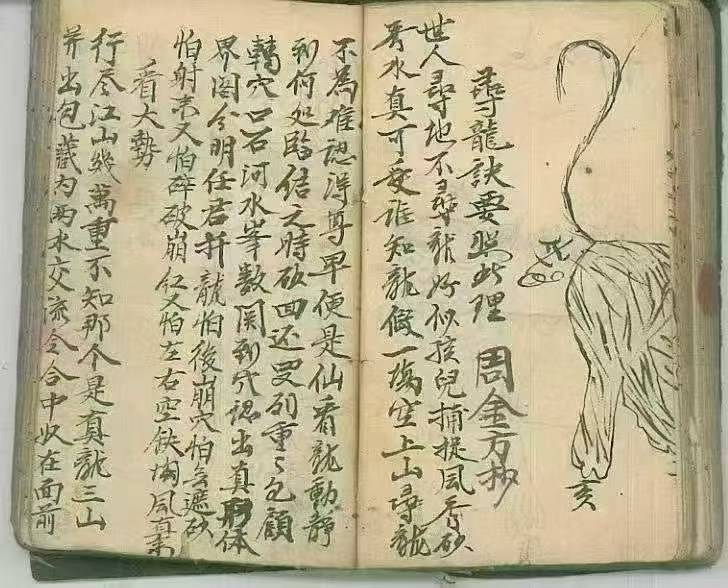 亥
尋龍訣要照此理 周金方抄
世人尋地不尋龍好似孩兒捕捉風看砂
秀水真可愛誰知龍假一塲空上山尋龍
不為难認得尊卑便是仙看龍動静
到何処臨结之時砂回还叠列重々包顧
轉穴口石河水峯数関到穴認出真形体
界图分明任君扦龍怕後崩穴怕無遮砂
怕射来又怕碎破崩红又怕左右空缺凹風
看大勢
行尽江山幾萬重不知那个是真龍三山
并出包藏内两水交流合中收在面前